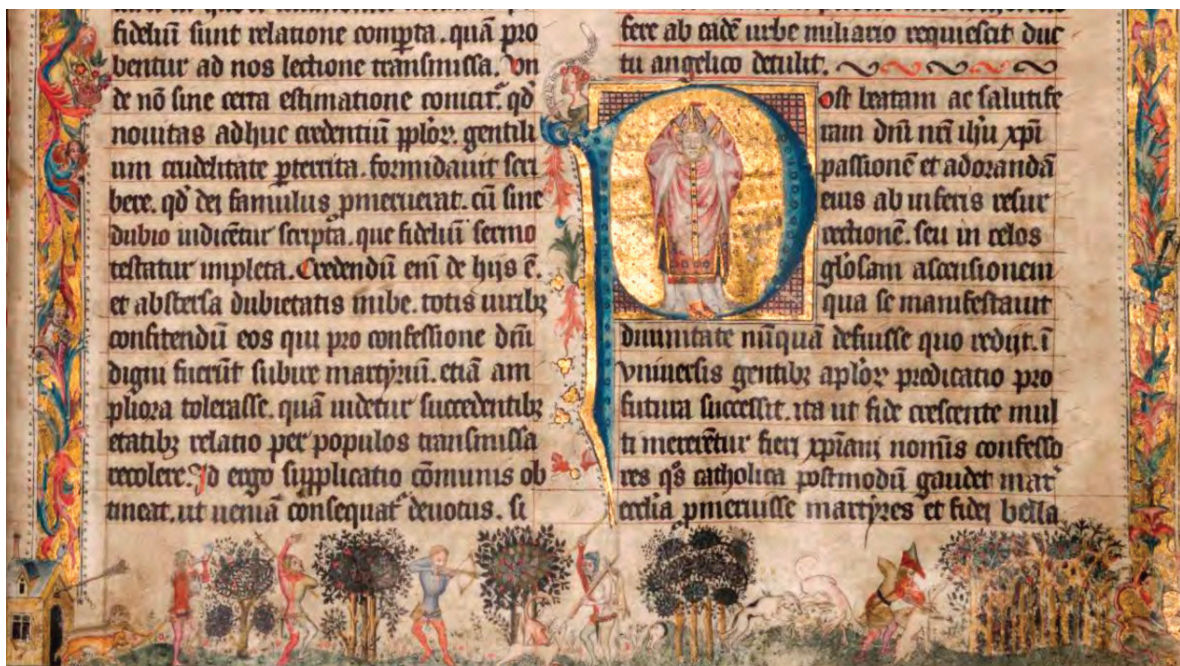 fideliū sunt relatione comꝑta. quā pro
bentur ad nos lectione transmissa. Vn
de nō sine certa estimatione conicit᷑. qd̄
nouitas adhuc credentiū pp̄loꝝ. gentili
um crudelitate ꝑterrita. formidauit scri
bere. qd̄ dei famulus ꝓmeruerat. cū sine
dubio uidicētur scripta. que fideliū sermo
testatur impleta. Credendū eni᷑ de hijs ē.
et abstersa dubietatis nube. totis uiribꝫ
confitendū eos qui pro confessione dn̄i
digni fuer̄ūt subire martyriū. etiā am
pliora tolerasse. quā uidetur succedentibꝫ
etatibꝫ relatio per populos transmissa
recolere. Id ergo supplicatio cōmunis ob
tineat. ut ueniā consequat᷑ deuotus. si
fere ab eadē urbe miliario requiescit duc
tu angelico detulit.
Post beatam ac salutife
ram dn̄i nr̄i ih̄u xp̄i
passionē et adorandā
eius ab inferis resur
rectionē. seu in celos
gl̄osam ascensionem
qua se manifestauit
diuinitate nūquā defuisse quo redijt. ī
vniuersis gentibꝫ ap̄loꝝ predicatio pro
futura successit. ita ut fide crescente mul
ti mererētur fieri xp̄iani nominis confesso
res q̄s catholica postmodū gaudet mat᷑
ecclīa ꝓmeruisse martyres et fidei bella